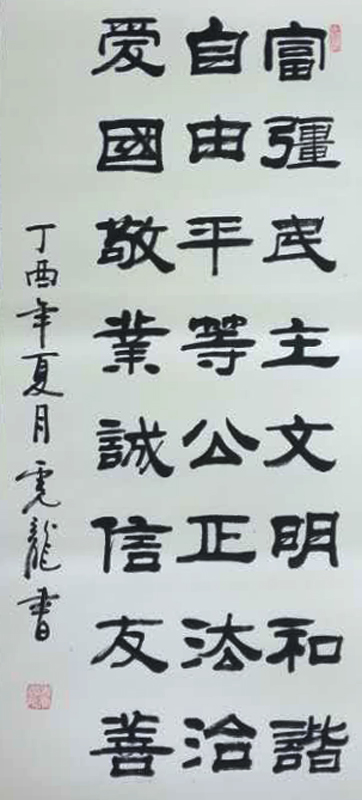 富彊民主文明和諧
自由平等公正法治
愛國敬業誠信友善
丁酉年夏月虎龍書